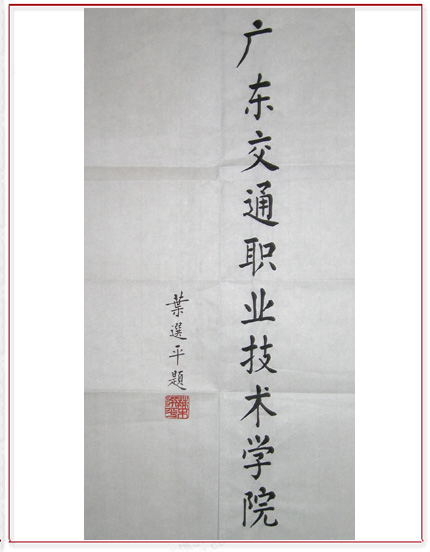 广东交通职业技术学院
葉選平題